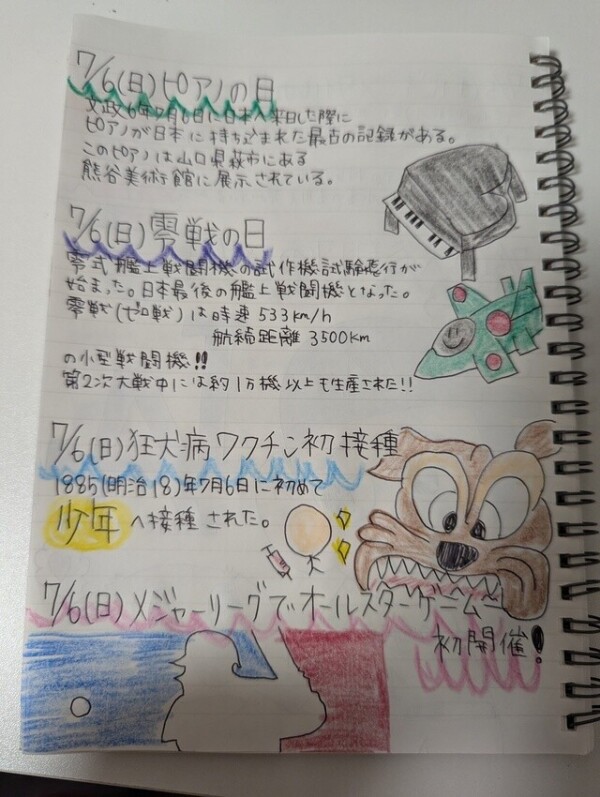 7/6(日)ピアノの日
文政6年7月6日に日本へ来日した際に
ピアノが日本に持ち込まれた最古の記録がある。
このピアノは山口県萩市にある
熊谷美術館に展示されている。
7/6(日)零戦の日
零式艦上戦闘機の試作機試験飛行が
始まった。日本最後の艦上戦闘機となった。
零戦(ゼロ戦)は時速533km/h
航続距離3500km
の小型戦闘機!!
第2次大戦中には約1万機以上も生産された!!
7/6(日)狂犬病ワクチン初接種
1885(明治18)年7月6日に初めて
少年へ接種された。
7/6(日)メジャーリーグでオールスターゲーム
初開催!